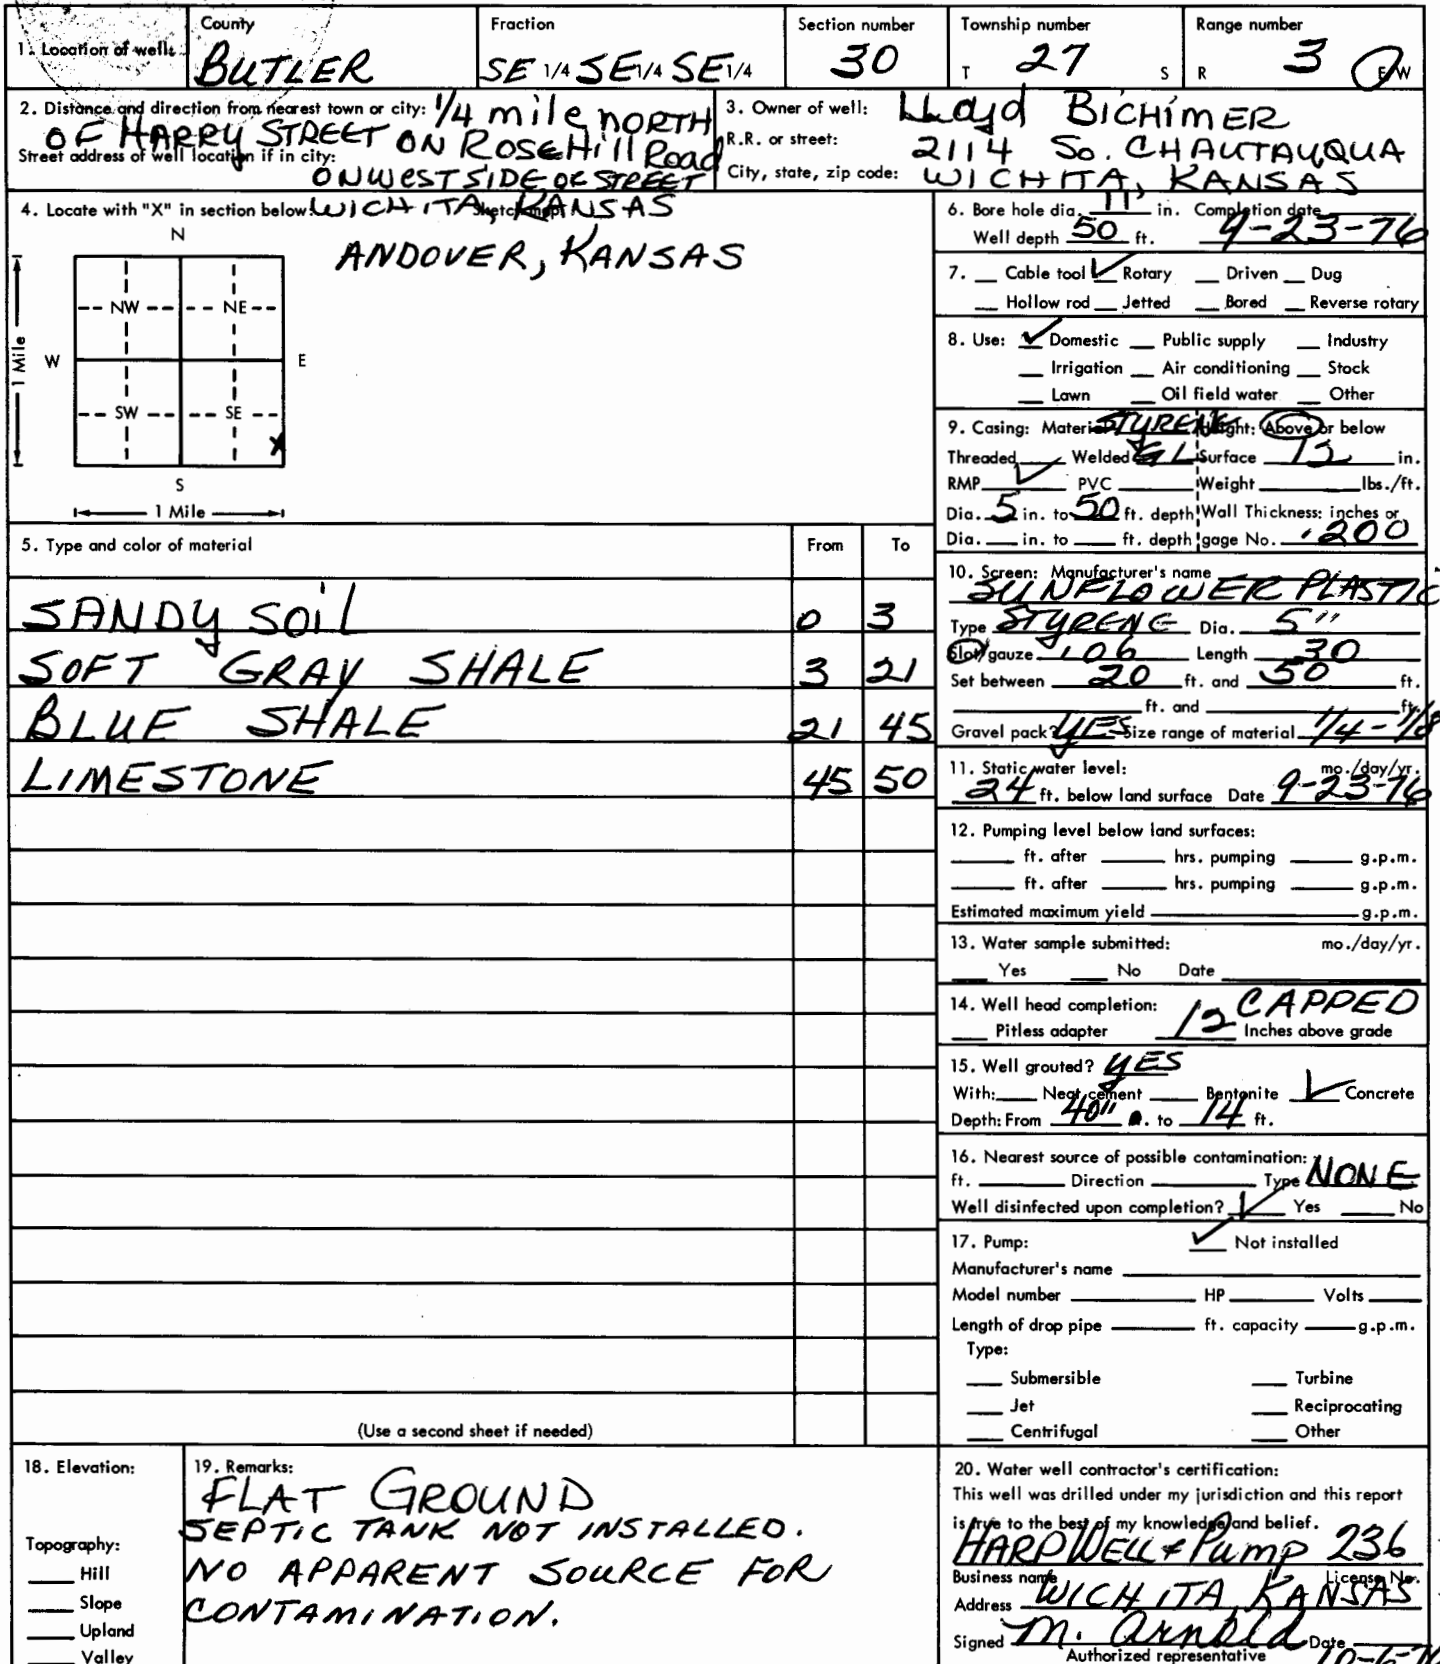 1. Location of well:
County
BUTLER
Fraction
SE 1/4 SE 1/4 SE 1/4
Section number
30
Township number
T 27 S
Range number
R 3 E/W
2. Distance and direction from nearest town or city: 1/4 mile NORTH
OF HARRY STREET ON ROSEHill Road
Street address of well location if in city:
ON WEST SIDE OF STREET
3. Owner of well: LLoyd BICHIMER
R.R. or street: 2114 So. CHAUTAUQUA
City, state, zip code: WICHITA, KANSAS
4. Locate with "X" in section below: WICHITA, KANSAS
Sketch map:
ANDOVER, KANSAS
N
NW NE
W E
1 Mile
SW SE
X
S
1 Mile
5. Type and color of material From To
SANDY SOIL 0 3
SOFT GRAY SHALE 3 21
BLUE SHALE 21 45
LIMESTONE 45 50
(Use a second sheet if needed)
6. Bore hole dia. 11 in. Completion date
Well depth 50 ft. 9-23-76
7. Cable tool ✓ Rotary Driven Dug
Hollow rod Jetted Bored Reverse rotary
8. Use: ✓ Domestic Public supply Industry
Irrigation Air conditioning Stock
Lawn Oil field water Other
9. Casing: Material STYRENE Height: Above or below
Threaded Welded Surface 12 in.
RMP ✓ PVC Weight lbs./ft.
Dia. 5 in. to 50 ft. depth Wall Thickness: inches or
Dia. in. to ft. depth gage No. .200
10. Screen: Manufacturer's name
SUNFLOWER PLASTIC
Type STYRENE Dia. 5"
Slot/gauze .06 Length 30
Set between 20 ft. and 50 ft.
ft. and ft.
Gravel pack? YES Size range of material 1/4 - 1/8
11. Static water level: mo./day/yr.
24 ft. below land surface Date 9-23-76
12. Pumping level below land surfaces:
ft. after hrs. pumping g.p.m.
ft. after hrs. pumping g.p.m.
Estimated maximum yield g.p.m.
13. Water sample submitted: mo./day/yr.
Yes No Date
14. Well head completion: CAPPED
Pitless adapter 12 Inches above grade
15. Well grouted? YES
With: Neat cement Bentonite ✓ Concrete
Depth: From 40" to 14 ft.
16. Nearest source of possible contamination:
ft. Direction Type NONE
Well disinfected upon completion? ✓ Yes No
17. Pump: ✓ Not installed
Manufacturer's name
Model number HP Volts
Length of drop pipe ft. capacity g.p.m.
Type:
Submersible Turbine
Jet Reciprocating
Centrifugal Other
18. Elevation:
Topography:
Hill
Slope
Upland
Valley
19. Remarks:
FLAT GROUND
SEPTIC TANK NOT INSTALLED.
NO APPARENT SOURCE FOR
CONTAMINATION.
20. Water well contractor's certification:
This well was drilled under my jurisdiction and this report
is true to the best of my knowledge and belief.
HARP WELL & Pump 236
Business name License No.
Address WICHITA, KANSAS
Signed M. Arnold Date
Authorized representative